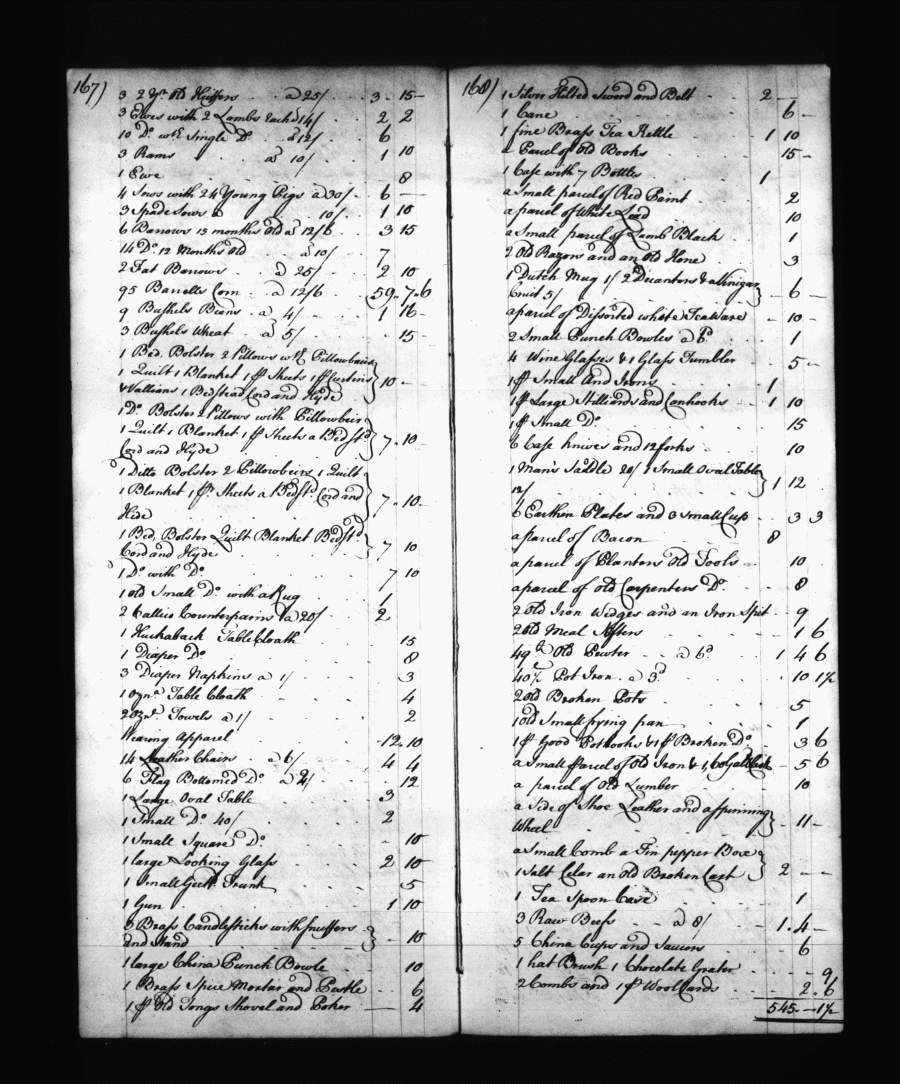 167)
3 2 Yr Old Heiffers a 25/ 3 15 —
3 Ewes with 2 Lambs Each a 14/ 2 2
10 Do wth Single Do a 12/ 6
3 Rams a 10/ 1 10
1 Ewe 8
4 Sows with 24 Young Pigs a 30/ 6 —
3 Spade Sows a 10/ 1 10
6 Barrows 18 months Old a 12/6 3 15
14 Do 12 Months Old a 10/ 7
2 Fat Barrows a 25/ 2 10
95 Barrells Corn a 12/6 59 7 6
9 Bushels Beans a 4/ 1 16 —
3 Bushels Wheat a 5/ 15 —
1 Bed, Bolster 2 Pillows wth Pillowbeirs
1 Quilt 1 Blanket 1 pr Sheets 1 pr Curtins } 10 —
& Vallians 1 Bedstead Cord and Hyde
1 Do Bolster 2 Pillows with Pillowbeirs
1 Quilt 1 Blanket 1 pr Sheets a Bedstd } 7 10 —
Cord and Hyde
1 Ditto Bolster 2 Pillowbeirs 1 Quilt
1 Blanket 1 pr Sheets a Bedstd Cord and } 7 10 —
Hide
1 Bed, Bolster Quilt Blanket Bedstd
Cord and Hyde } 7 10
1 Do with Do 7 10
1 old Small Do with a Rug 1
2 Callico Counterpains a 20/ 2
1 Huckaback Table Cloath 15
1 Diaper Do 8
3 Diaper Napkins a 1/ 3
1 Ozns Table Cloath 4
2 Ozns Towels a 1/ 2
Wearing Apparel 12 10
14 Leather Chairs a 6/ 4 4
6 Flag Bottomed Do a 2/ 12
1 Large Oval Table 3
1 Small Do 40/ 2
1 Small Square Do 10
1 large Looking Glass 2 10
1 Small Trunk 5
1 Gun 1 10
3 Brass Candlesticks with snuffers
and Stand } 10
1 large China Punch Bowle 10
1 Brass Spice Mortar and Pestle 6
1 pr Old Tongs Shovel and Poker 4
168)
1 Silver Hilted Sword and Belt 2 —
1 Cane 6 —
1 fine Brass Tea Kettle 1 10
a Parcel of Old Books 15 —
1 Case with 7 Bottles 1
a Small parcel of Red Paint 2
a parcel of White Lead 10
a Small parcel of Lamb Black 1
2 Old Razors and an old Hone 3
1 Dutch Mug 1/ 2 Decanters & a Vinigar
Cruit 5/ } 6 —
a parcel of Dissorted white Tea Ware 10 —
2 Small Punch Bowles a 6d 1
4 Wine Glasses & 1 Glass Tumbler 5 —
1 pr Small And Irons 1
1 pr Large Stilliards and Canhooks 1 10
1 pr Small Do 15
6 Case knives and 12 forks 10
1 Man's Saddle 20/ 1 Small Oval Table
12/ } 1 12
6 Earthen Plates and 3 small Cup 3 3
a parcel of Bacon 8
a parcel of Planters Old Tools 10
a parcel of old Carpenters Do 8
2 Old Iron Widges and an Iron Spit 9
2 Old Meal Sifters 1 6
49 lb Old Pewter a 6d 1 4 6
40½ Pot Iron a 3d 10 1½
2 old Broken Pots 5
1 old Small frying pan 1
1 pr Good Pothooks & 1 pr Broken Do 3 6
a Small Parcel of Old Iron & 1, 60 Gall Cask 5 6
a parcel of Old Lumber 10
a Side of Shoe Leather and a spinning
Wheel } 11 —
a Small Comb a Tin pepper Box
1 Salt Celar an old Broken Cart } 2 —
1 Tea Spoon Case 1
3 Raw Beefs a 8/ 1 4 —
5 China Cups and Saucers 6
1 hat Brush 1 Chocolate Grater 9
2 Combs and 1 pr Wool Cards 2 6
545 — 1½